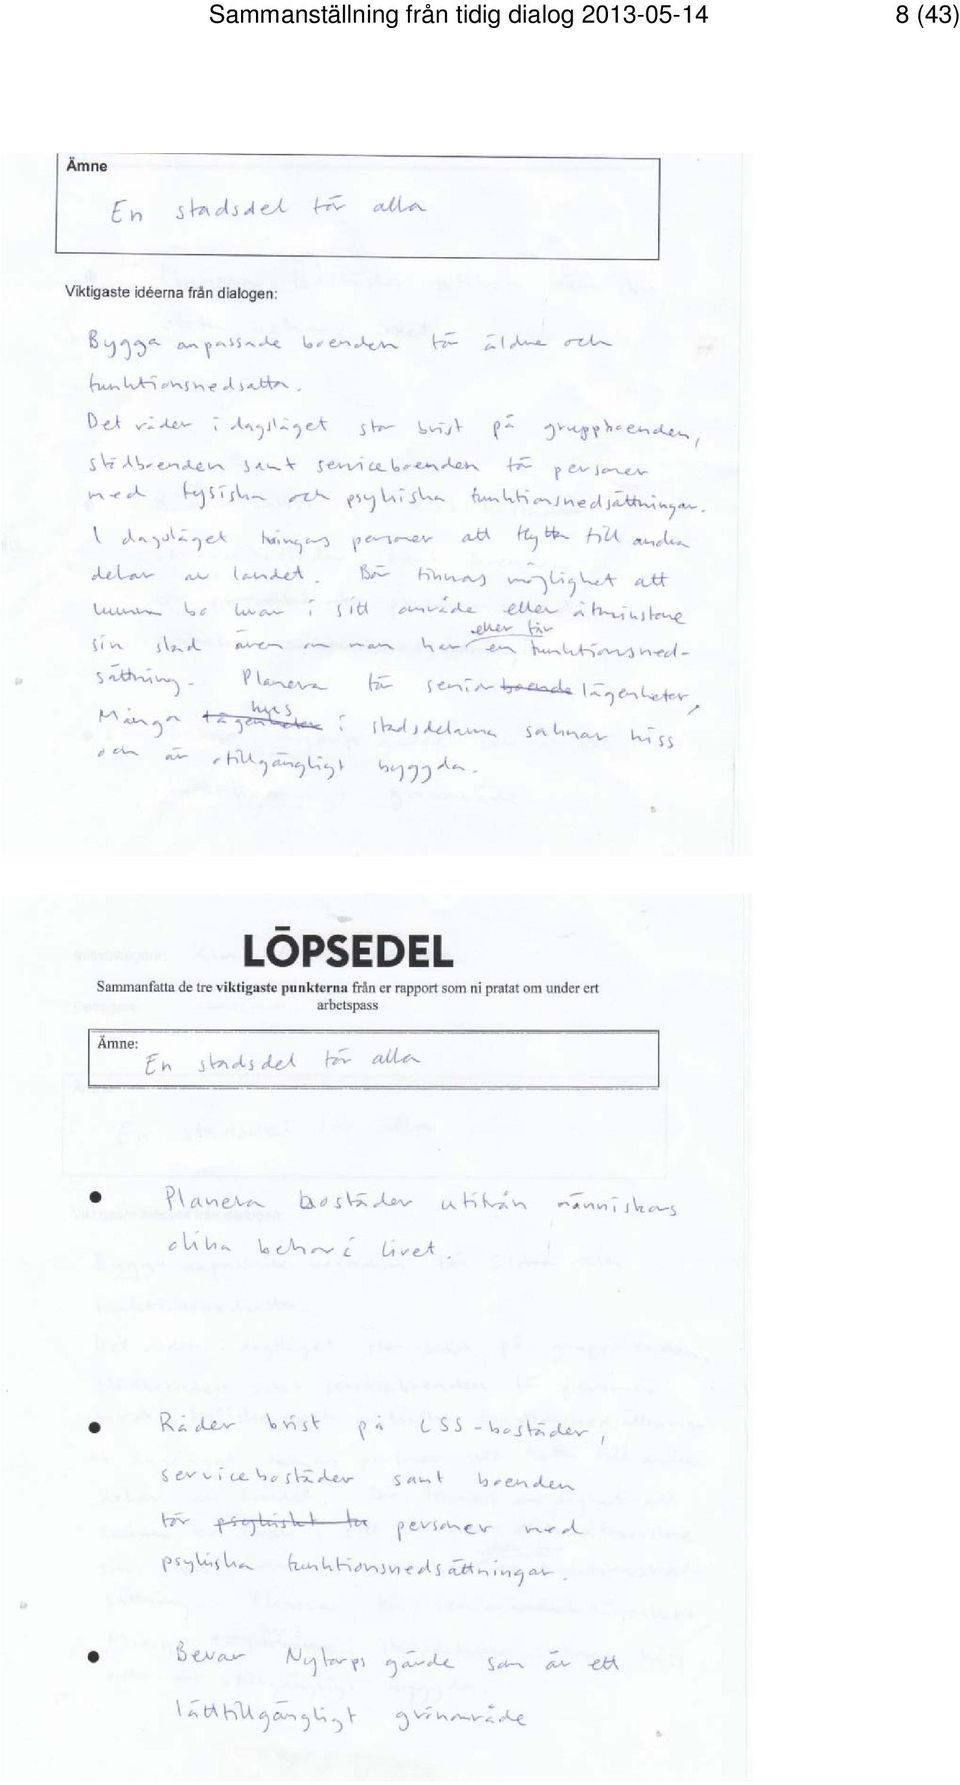 Sammanställning från tidig dialog 2013-05-14 8 (43)
Ämne
En stadsdel för alla
Viktigaste idéerna från dialogen:
Bygga anpassade boenden för äldre och
funktionsnedsatta.
Det råder i dagsläget stor brist på gruppboenden,
stödboenden samt serviceboenden för personer
med fysiska och psykiska funktionsnedsättningar.
I dagsläget tvingas personer att flytta till andra
delar av landet. Bör finnas möjlighet att
kunna bo kvar i sitt område eller åtminstone
eller får
sin stad även om man har en funktionsned-
sättning. Planera för senior boende lägenheter,
hus
Många lägenheter i stadsdelarna saknar hiss
och är otillgängligt byggda.
LÖPSEDEL
Sammanfatta de tre viktigaste punkterna från er rapport som ni pratat om under ert
arbetspass
Ämne:
En stadsdel för alla
• Planera bostäder utifrån människors
olika behov i livet.
• Råder brist på LSS-bostäder,
servicebostäder samt boenden
för psykiskt personer med
psykiska funktionsnedsättningar.
• Bevar Nytorps gärde som är ett
lättillgängligt grönområde